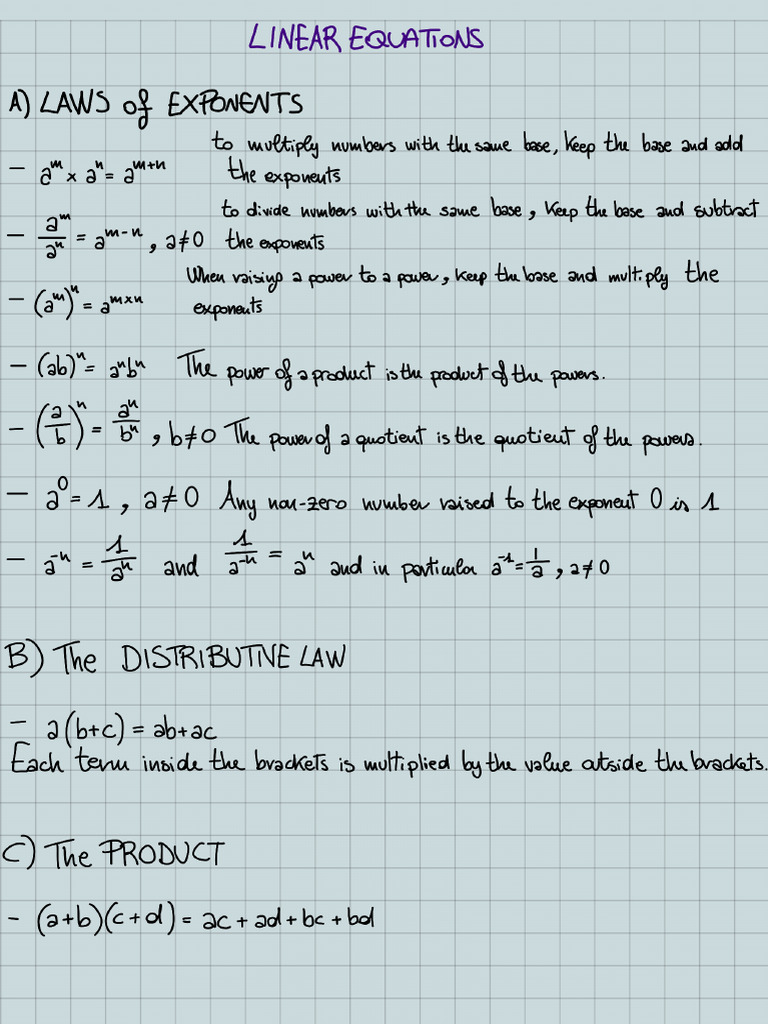 LINEAR EQUATIONS
A) LAWS of EXPONENTS
to multiply numbers with the same base, keep the base and add
- aᵐ × aⁿ = aᵐ⁺ⁿ the exponents
to divide numbers with the same base, keep the base and subtract
- aᵐ/aⁿ = aᵐ⁻ⁿ, a≠0 the exponents
When raising a power to a power, keep the base and multiply the
- (aᵐ)ⁿ = aᵐˣⁿ exponents
- (ab)ⁿ = aⁿbⁿ The power of a product is the product of the powers.
- (a/b)ⁿ = aⁿ/bⁿ, b≠0 The power of a quotient is the quotient of the powers.
- a⁰ = 1, a≠0 Any non-zero number raised to the exponent 0 is 1
- a⁻ⁿ = 1/aⁿ and 1/a⁻ⁿ = aⁿ and in particular a⁻¹ = 1/a, a≠0
B) The DISTRIBUTIVE LAW
- a(b+c) = ab+ac
Each term inside the brackets is multiplied by the value outside the brackets.
C) The PRODUCT
- (a+b)(c+d) = ac + ad + bc + bd